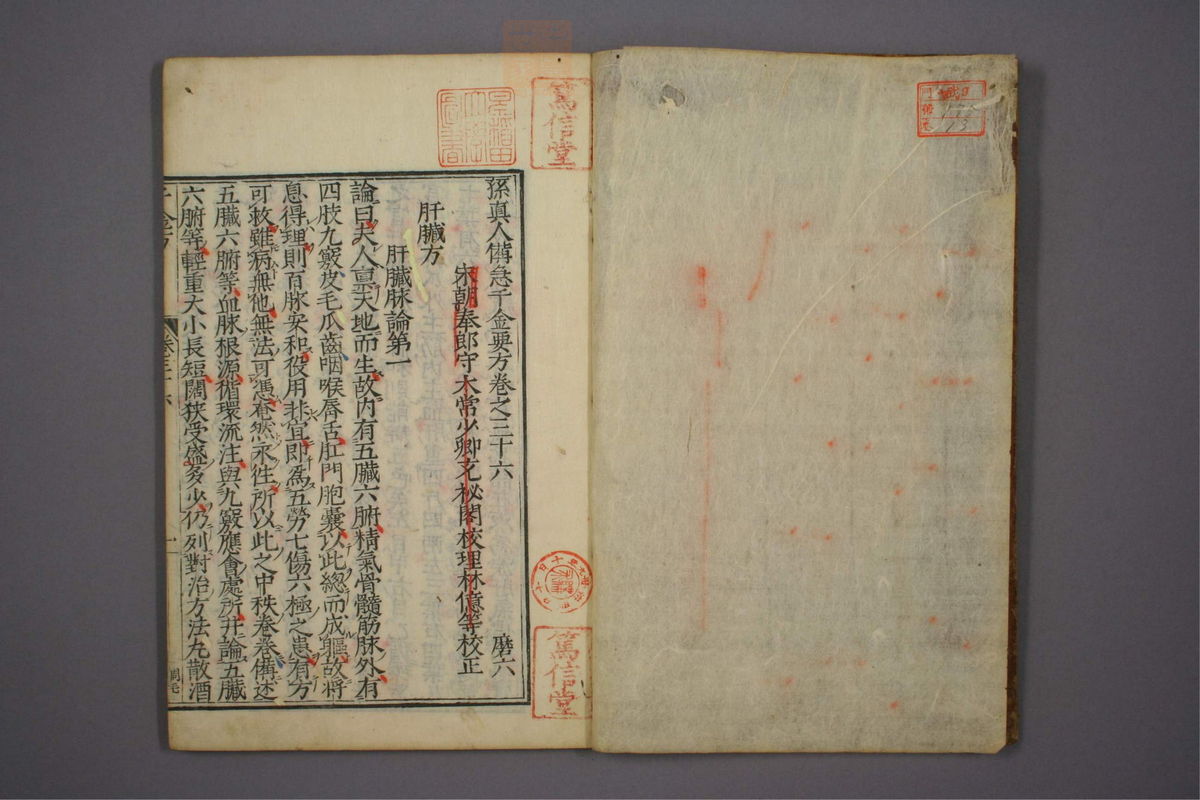 孫真人備急千金要方卷之三十六 磨六
宋朝奉郎守太常少卿充祕閣校理林億等校正
肝臟方
肝臟脉論第一
論曰夫人禀天地而生故内有五臟六腑精氣骨髓筋脉外有
四肢九竅皮毛爪齒咽喉唇舌肛門胞囊以此總而成軀故將
息得理則百脉安和役用非宜即爲五勞七傷六極之患有方
可救雖病無他無法可憑奄然永徃所以此之中秩卷卷備述
五臟六腑等血脉根源循環流注與九竅應會處所幷論五臟
六腑等輕重大小長短闊狹受盛多少仍列對治方法丸散酒
篤信堂
篤信堂